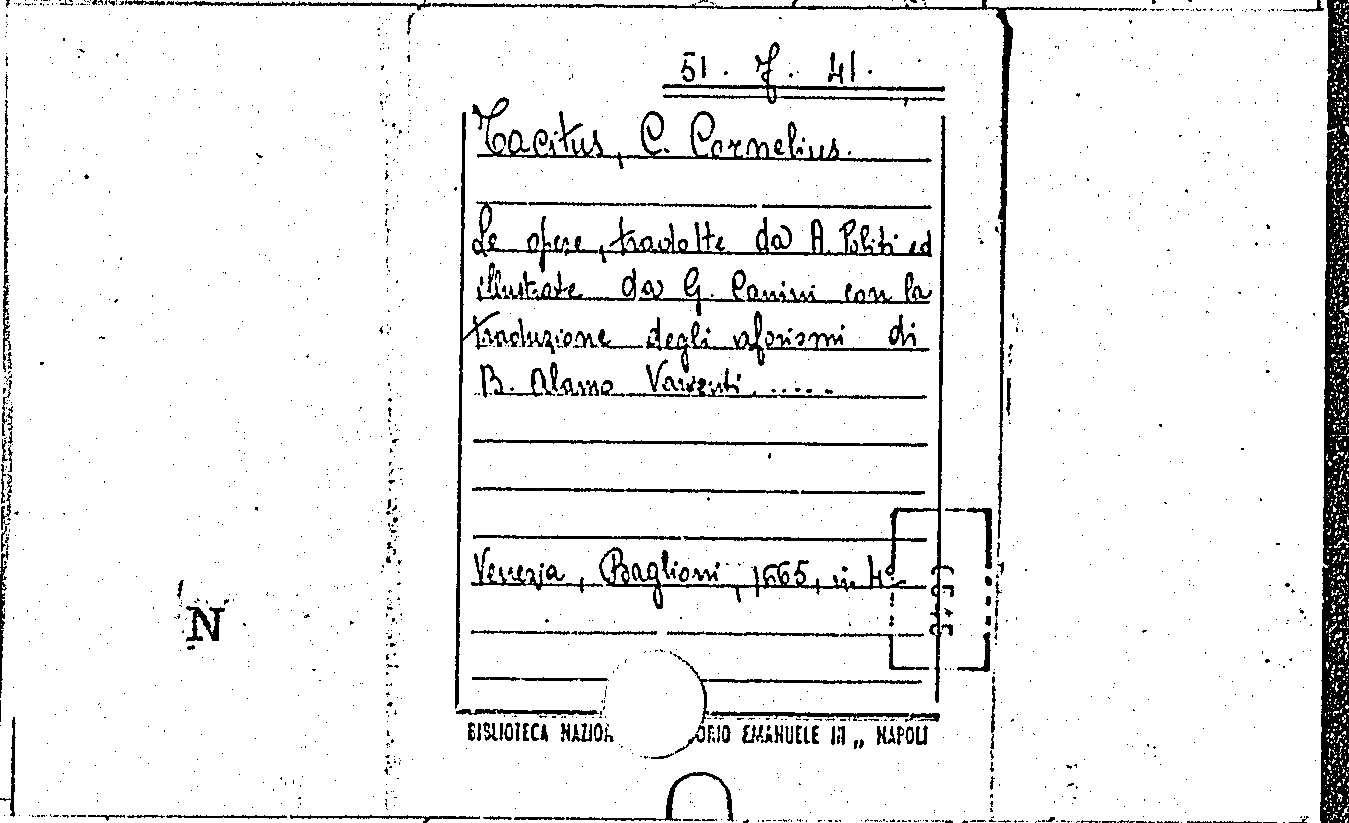 51. J. 41.
Tacitus, C. Cornelius.
Le opere, tradotte da A. Politi ed
illustrate da G. Canini con la
traduzione degli aforismi di
B. Alamo Varienti .....
Venezia, Baglioni, 1665, in 4°
N
BIBLIOTECA NAZION ORIO EMANUELE III „ NAPOLI